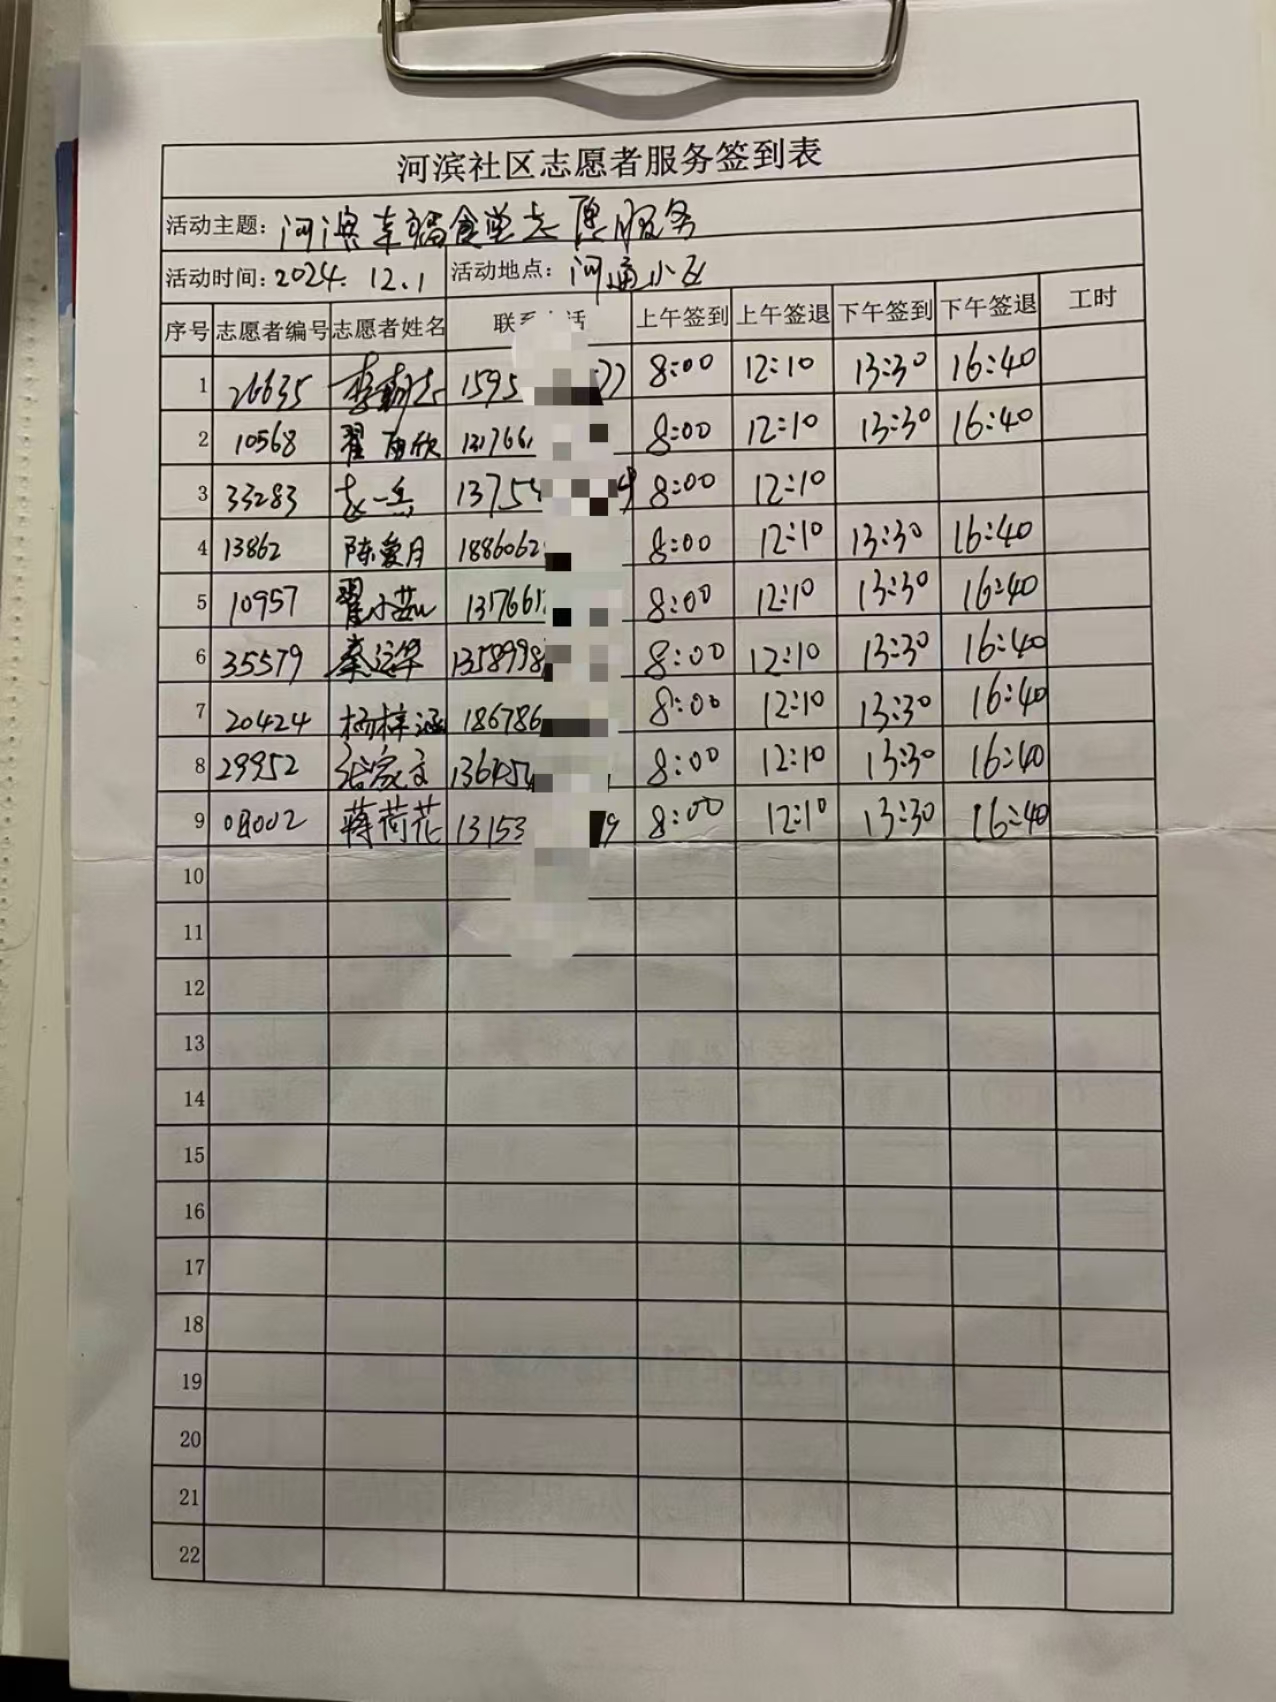 河滨社区志愿者服务签到表
活动主题：河滨幸福食堂志愿服务
活动时间：2024.12.1 活动地点：河通小区
序号 志愿者编号 志愿者姓名 联系电话 上午签到 上午签退 下午签到 下午签退 工时
1 26635 1595 77 8:00 12:10 13:30 16:40
2 10568 翟雨欣 1317661 8:00 12:10 13:30 16:40
3 33283 13754 9 8:00 12:10
4 13862 陈爱月 1886062 8:00 12:10 13:30 16:40
5 10957 翟小燕 1317661 8:00 12:10 13:30 16:40
6 35579 秦运华 1358998 8:00 12:10 13:30 16:40
7 20424 杨梓涵 186786 8:00 12:10 13:30 16:40
8 29952 张家文 136454 8:00 12:10 13:30 16:40
9 蒋荷花 13153 9 8:00 12:10 13:30 16:40
10
11
12
13
14
15
16
17
18
19
20
21
22